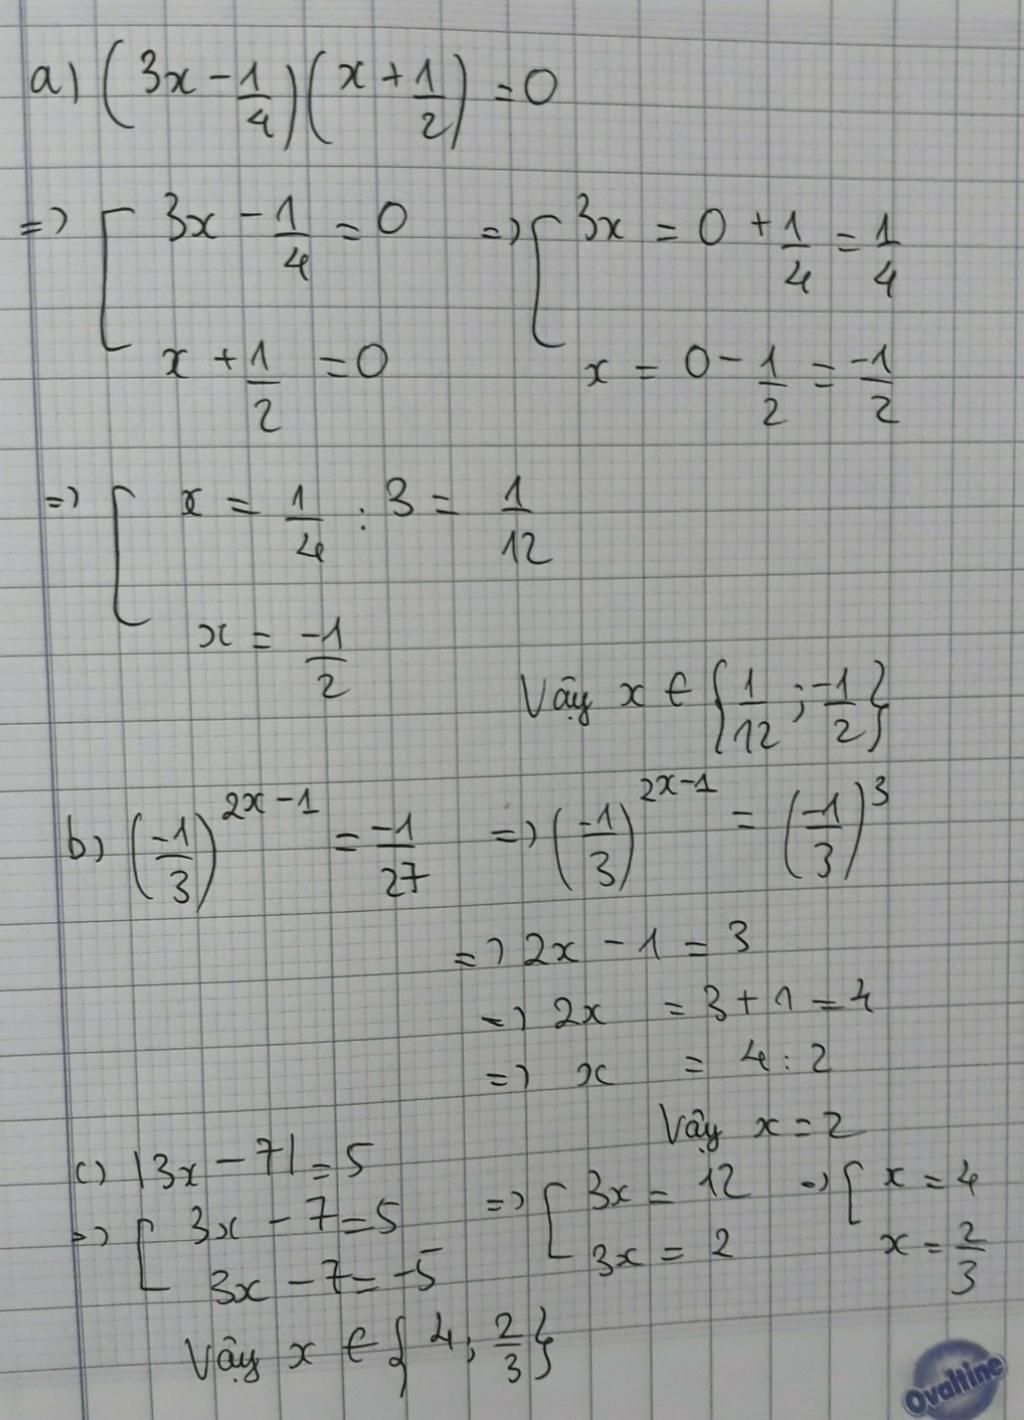 a) (3x - 1/4)(x + 1/2) = 0
=> [ 3x - 1/4 = 0 => [ 3x = 0 + 1/4 = 1/4
x + 1/2 = 0 x = 0 - 1/2 = -1/2
=> [ x = 1/4 : 3 = 1/12
x = -1/2
Vậy x ∈ {1/12 ; -1/2}
b) (-1/3)^(2x - 1) = -1/27 => (-1/3)^(2x-1) = (-1/3)^3
=> 2x - 1 = 3
=> 2x = 3 + 1 = 4
=> x = 4 : 2
Vậy x = 2
c) |3x - 7| = 5
=> [ 3x - 7 = 5 => [ 3x = 12 => [ x = 4
3x - 7 = -5 3x = 2 x = 2/3
Vậy x ∈ {4; 2/3}
Ovaltine